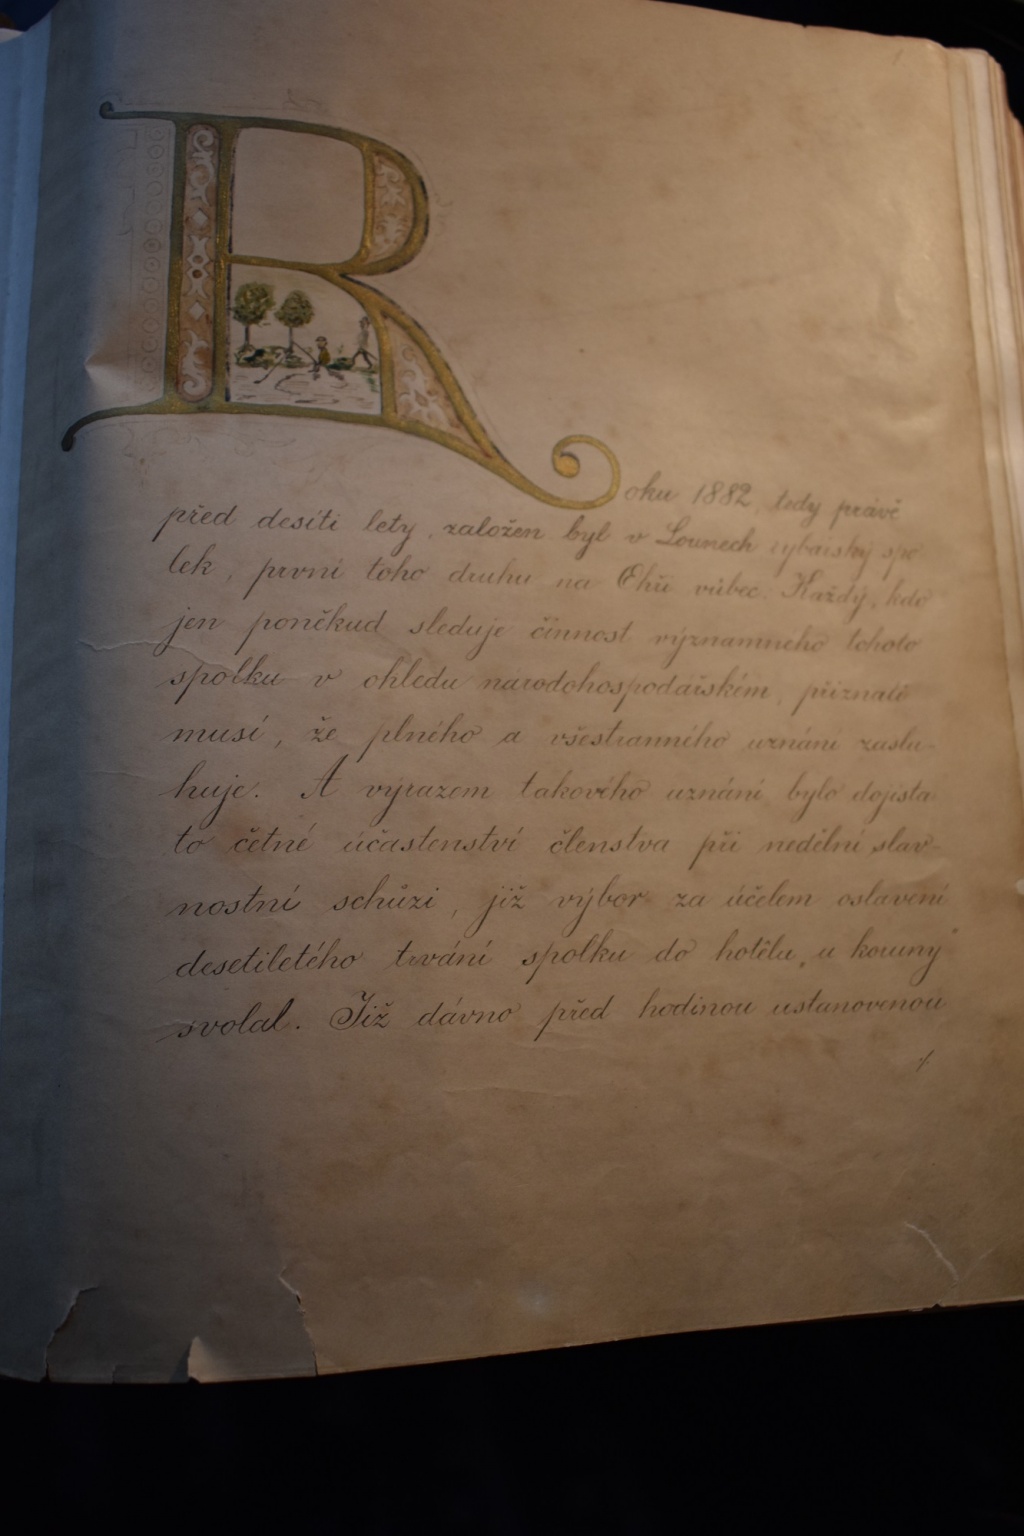 Roku 1882, tedy právě
před desíti lety, založen byl v Lounech rybářský spo
lek, první toho druhu na Ohři vůbec. Každý, kdo
jen poněkud sleduje činnost významného tohoto
spolku v ohledu národohospodářském, přiznati
musí, že plného a všestranného uznání zaslu-
huje. A výrazem takového uznání bylo dojista
to četné účastenství členstva při nedělní slav-
nostní schůzi, již výbor za účelem oslavení
desetiletého trvání spolku do hotêlu „u koruny"
svolal. Již dávno před hodinou ustanovenou
./.